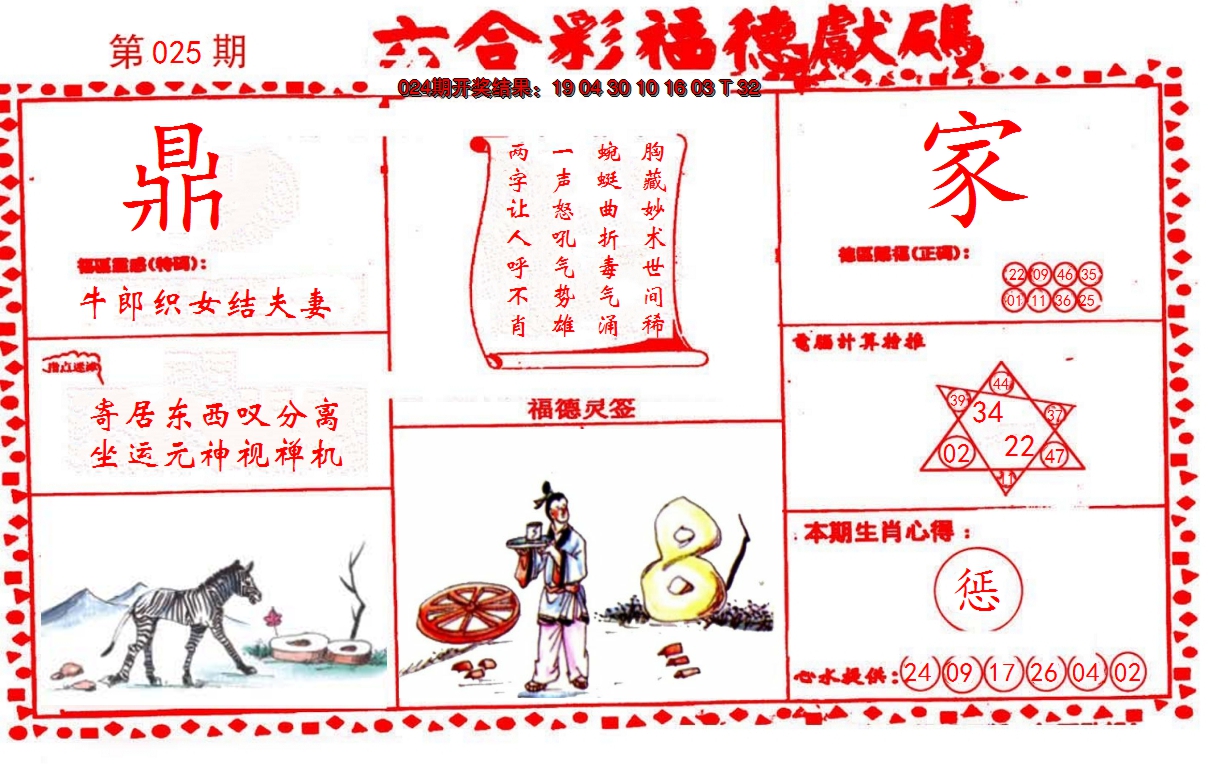 第025期
六合彩福德獻碼
024期开奖结果：19 04 30 10 16 03 T 32
鼎
牛郎织女结夫妻
寄居东西叹分离
坐运元神视禅机
胸藏妙术世间稀
蜿蜒曲折毒气涌
一声怒吼气势雄
两字让人呼不肖
福德灵签
家
22 09 46 35
01 11 36 25
電腦计算抢推
44
39 34 37
02 22 47
11
本期生肖心得：
惩
心水提供:24 09 17 26 04 02